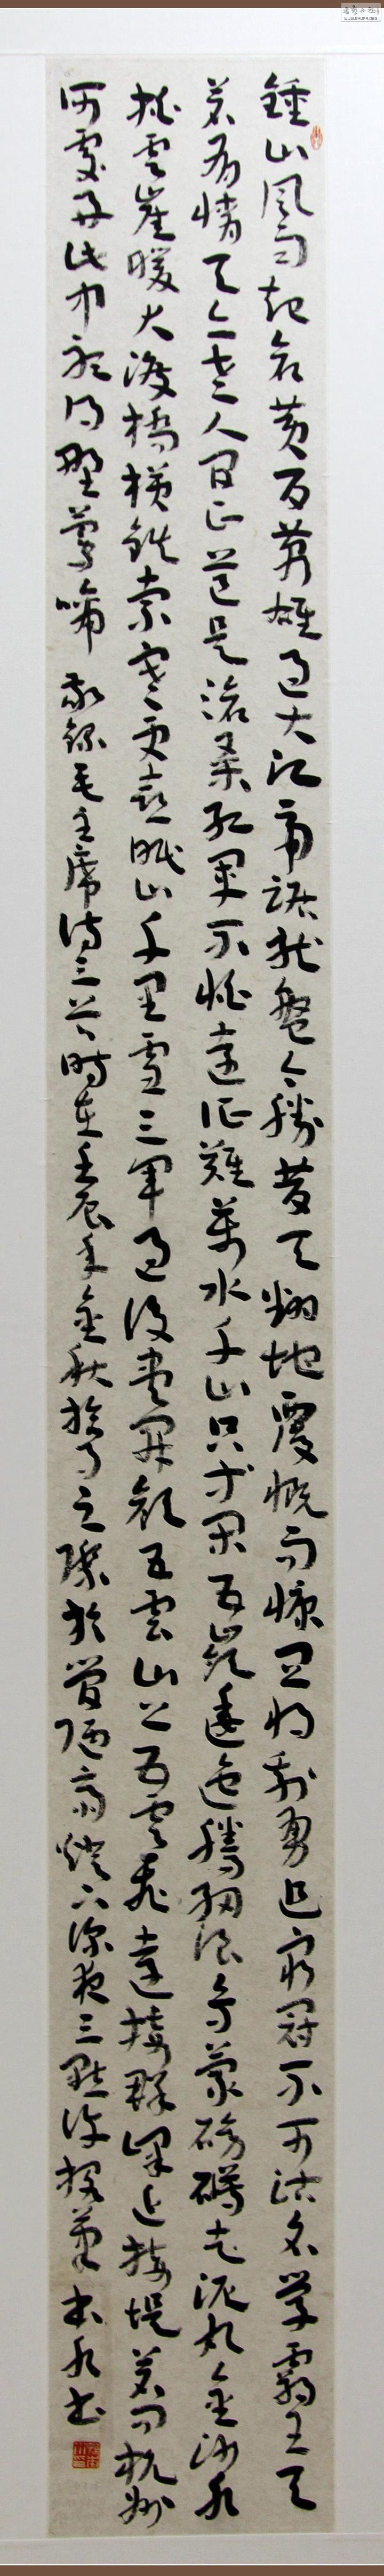 鍾山風雨起倉黃百萬雄過大江虎踞龍盤今勝昔天翻地覆慨而慷宜將剩勇追窮寇不可沽名學霸王天
若有情天亦老人間正道是滄桑紅軍不怕遠征難萬水千山只等閑五嶺逶迤騰細浪烏蒙磅礴走泥丸金沙水
拍雲崖暖大渡橋橫鐵索寒更喜岷山千里雪三軍過後盡開顏五雲山上五雲飛遠接群峰近接堤若問杭州
何處好此中聽得野鶯啼 敬錄毛主席詩三首時在壬辰年金秋之際於陋齋燈下深夜三點許書